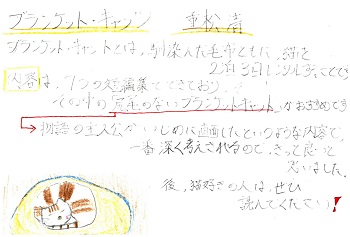 ブランケット・キャッツ 重松清
ブランケット・キャットとは、馴染んだ毛布とともに、猫を
2泊3日レンタルすることです
内容は、7つの短編集でできており、
その中の「尻尾のないブランケットキャット」がおすすめです
→物語の主人公がいじめに直面したというような内容で、
一番深く考えされるので、きっと良いと
思いました。
後、猫好きの人は、ぜひ
読んでください!